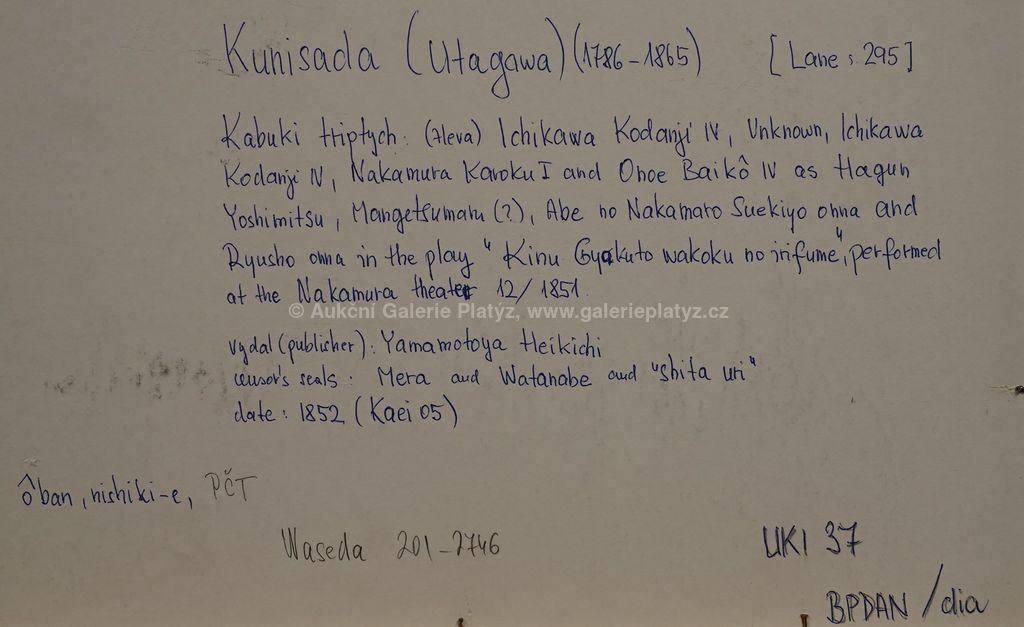 Kunisada (Utagawa) (1786-1865) [Lane s. 295]
Kabuki triptych: (zleva) Ichikawa Kodanji IV, Unknown, Ichikawa
Kodanji IV, Nakamura Karoku I and Onoe Baikô IV as Hagun
Yoshimitsu, Mangetsumaru (?), Abe no Nakamaro Suekiyo onna and
Ryusho onna in the play "Kinu Gyakuto wakoku no irifume", performed
at the Nakamura theater 12/1851.
© Aukční Galerie Platýz, www.galerieplatyz.cz
vydal (publisher): Yamamotoya Heikichi
censor's seals: Mera and Watanabe and "Shita uri"
date: 1852 (Kaei 05)
ôban, nishiki-e, PČT
Waseda 201-2746 UKI 37
BPDAN/dia